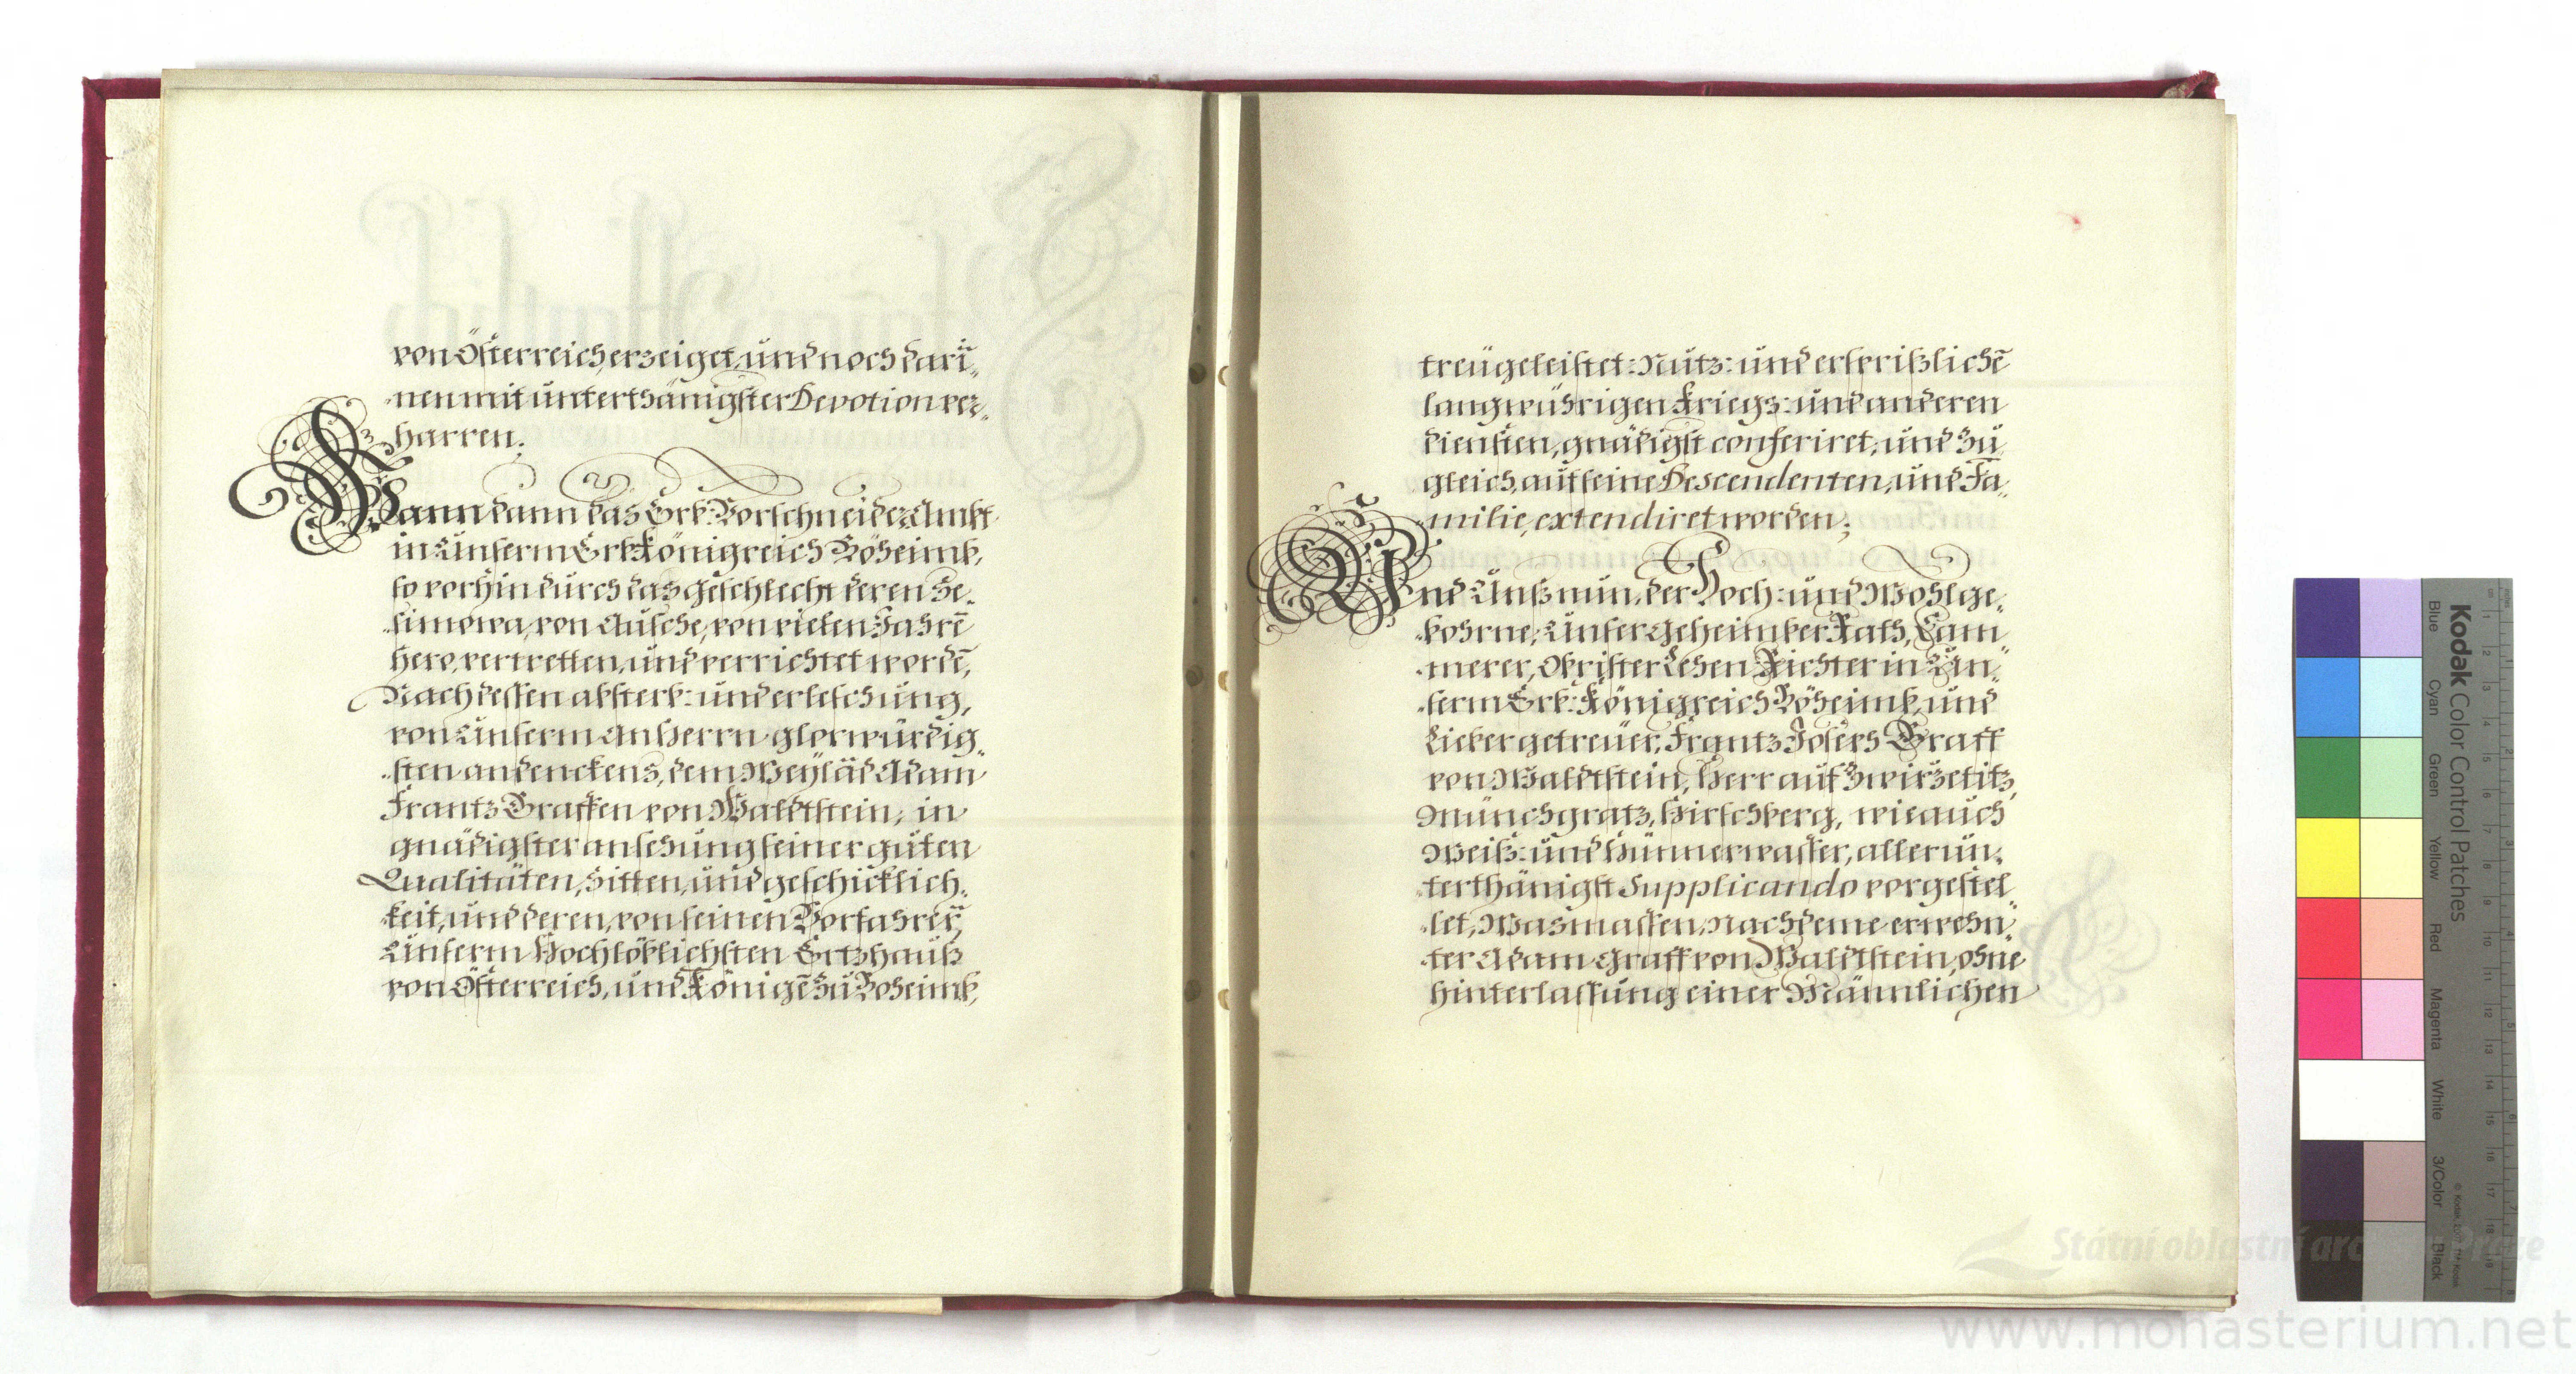 von Österreich, erzeiget, und noch darī-
nen mit unterthänigster Devotion ver-
harren;
Wann dann das Erb: Vorschneider Ambt
in Unserm Erb Königreich Böheimb,
so vorhin durch das geschlecht deren Se-
simowa, von Aüsche, von vielen Jahrē
hero, vertretten, und verrichtet wordē,
Nach dessen absterb: und erleschung,
von Unserm Anherrn glorwürdig-
sten andenckens, dem Weÿlād Adam
Frantz Graffen von Waldtstein, in
gnädigster ansehung seiner guten
Qualitäten, Sitten, und geschicklich-
keit, und deren, von seinen Vorfahrē,
Unserm Hochlöblichsten Ertzhauß
von Österreich, und Königē zu Böheimb,
treü geleistet: Nutz: und ersprißlichē
langwührigen Kriegs: und anderen
diensten, gnädigst conferiret, und zu
gleich, auf seine Descendenten, und Fa-
milie, extendiret worden;
Und Unß nun, der Hoch: und Wohlge-
bohrne, Unser geheimber Rath, Cam-
merer, Obrister Lehen Richter in Un-
serm Erb: Königreich Böheimb, und
Lieber getreüer, Frantz Joseph Graff
von Waldtstein, Herr auf Zwirzetitz,
Münchsgratz, Hirschberg, wie auch
Weiß: und Hünnerwasser, allerun-
terthänigst Supplicando vorgestel-
let, Wasmassen, nachdeme erwehn-
ter Adam Graff von Waldtstein, ohne
hinterlassung einer Männlichen
Kodak Color Control Patches
Blue Cyan Green Yellow Red Magenta White 3/Color Black
Státní oblastní
www.monasterium.net